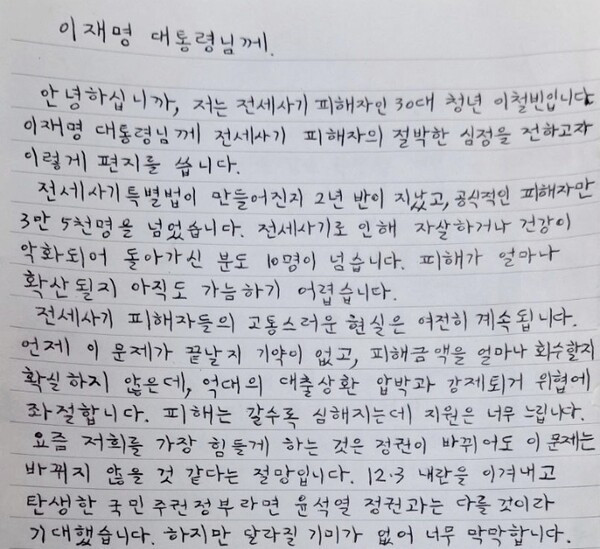 이재명 대통령님께.
안녕하십니까, 저는 전세사기 피해자인 30대 청년 이철빈입니다
이재명 대통령님께 전세사기 피해자의 절박한 심정을 전하고자
이렇게 편지를 씁니다.
전세사기특별법이 만들어진지 2년 반이 지났고, 공식적인 피해자만
3만 5천명을 넘었습니다. 전세사기로 인해 자살하거나 건강이
악화되어 돌아가신 분도 10명이 넘습니다. 피해가 얼마나
확산될지 아직도 가늠하기 어렵습니다.
전세사기 피해자들의 고통스러운 현실은 여전히 계속됩니다.
언제 이 문제가 끝날지 기약이 없고, 피해금액을 얼마나 회수할지
확실하지 않은데, 억대의 대출상환 압박과 강제퇴거 위협에
좌절합니다. 피해는 갈수록 심해지는데 지원은 너무 느립니다.
요즘 저희를 가장 힘들게 하는 것은 정권이 바뀌어도 이 문제는
바뀌지 않을 것 같다는 절망입니다. 12.3 내란을 이겨내고
탄생한 국민주권정부라면 윤석열 정권과는 다를것이라
기대했습니다. 하지만 달라질 기미가 없어 너무 막막합니다.